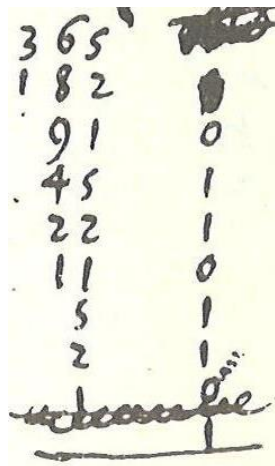 3 6 5
1 8 2
9 1 0
4 5 1
2 2 1
1 1 0
5 1
2 1
1 0
1